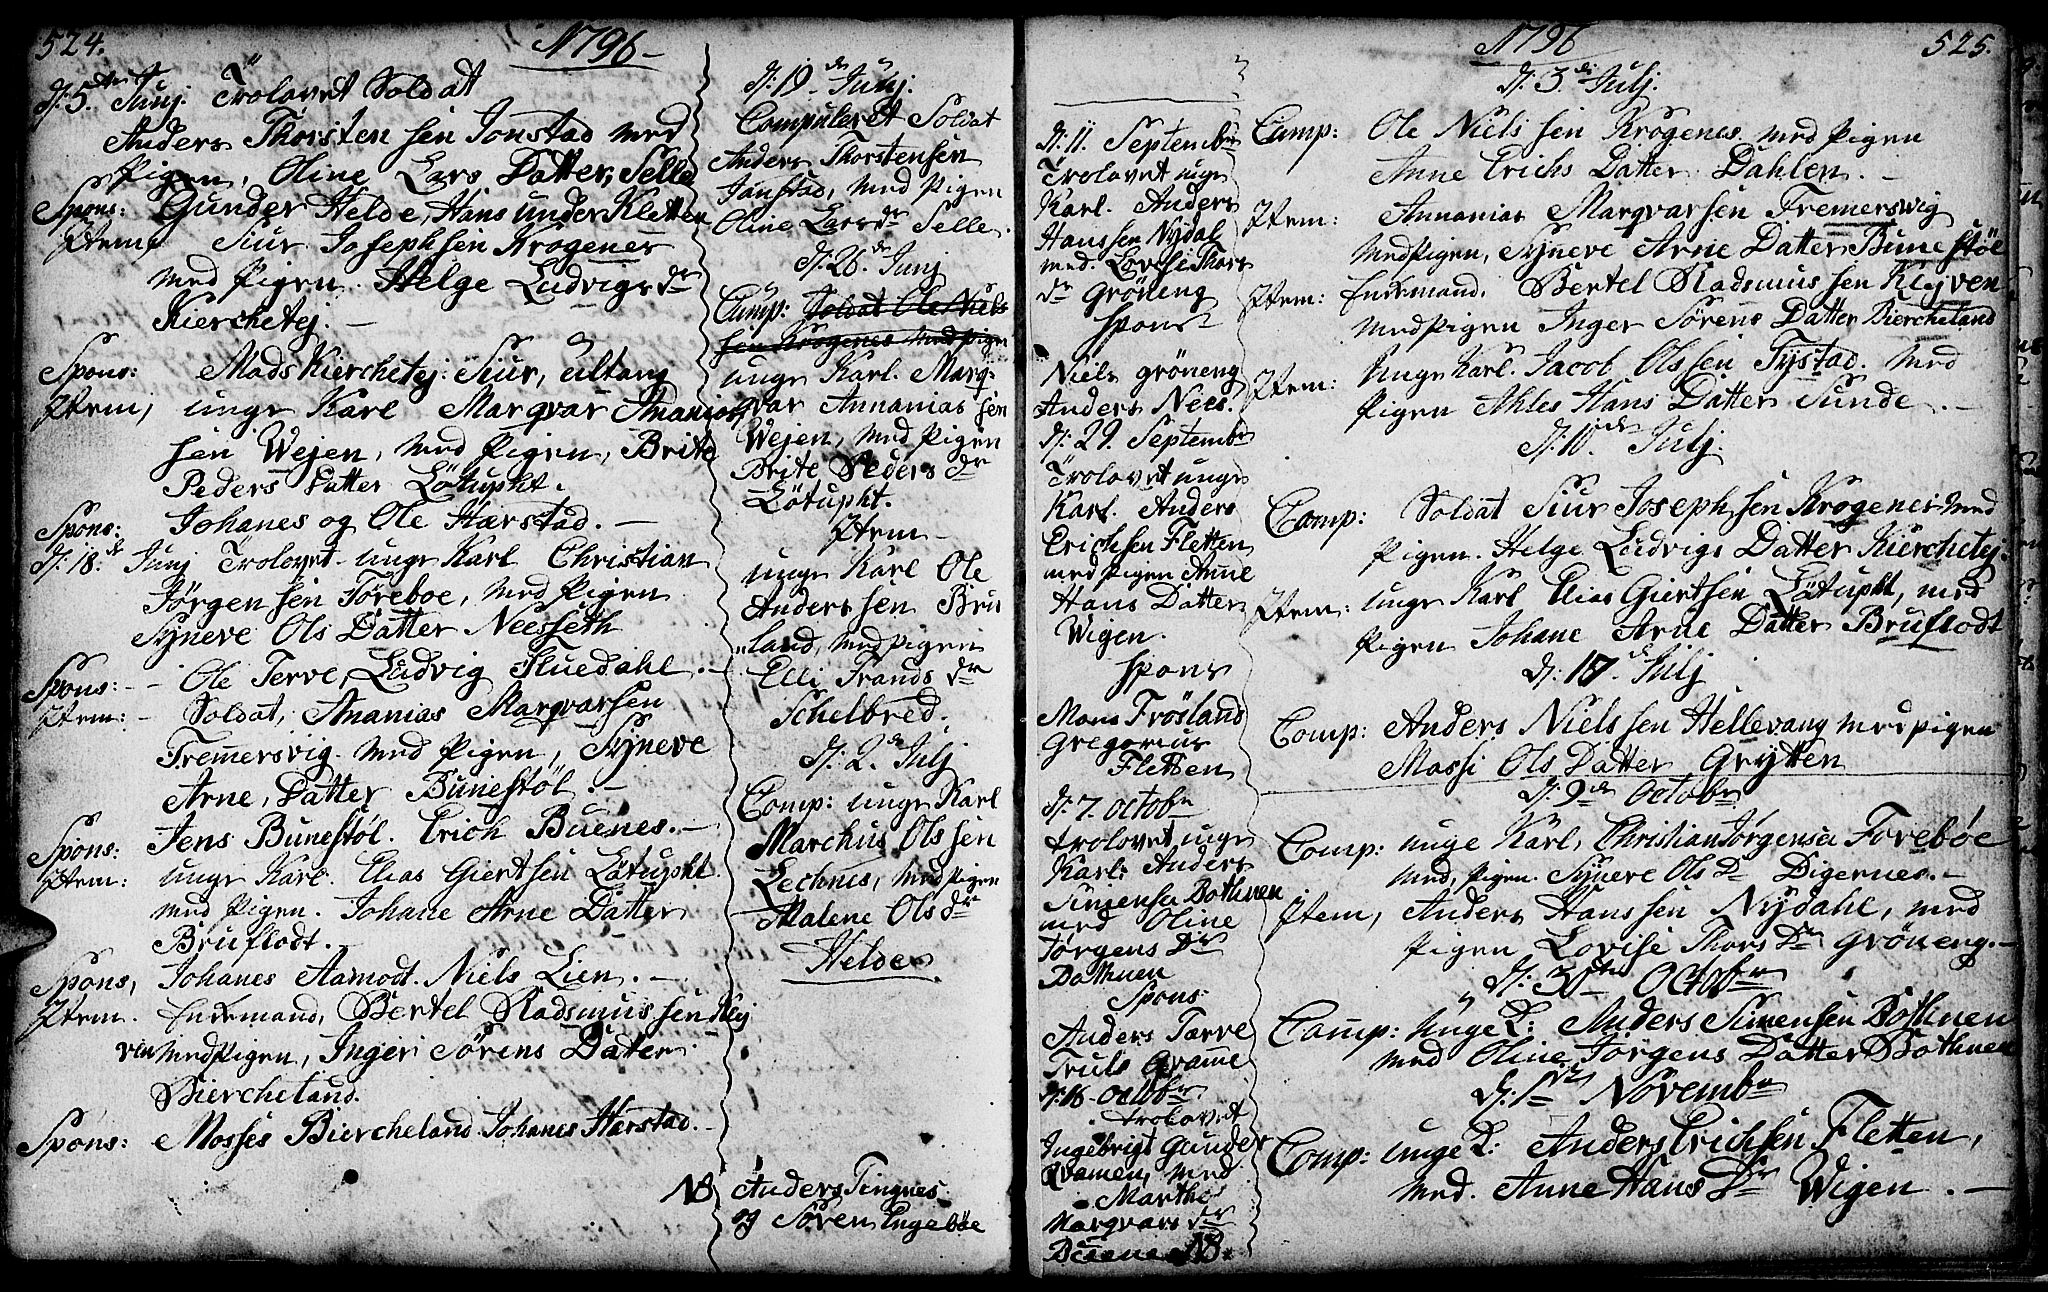 524.
1796
d: 5. Junj. Trolovet Soldat
Anders Thorsten sen Jonstad med
Pigen, Oline Lars Datter, Selle
Spons: Gunder Helde, Hans under Kletten
Item, Siur Josephsen Krogenes
med Pigen. Helge Ludvigs dr
Kierchetej. —
Spons: Mads Kierchetej: Siur, Ultang
Item, unge Karl Marqvar Ananias
sen Wejen, med Pigen, Brite
Peders Datter Løtupht.
Spons: Johanes og Ole Hærstad. —
d: 18: de Junj Trolovet unge Karl Christian
Jørgen sen Foreboe, med Pigen
Syneve Ols Datter Neesseth
Spons: — Ole Terve, Ludvig Fluedahl —
Item: — Soldat, Ananias Marqvarsen
Fremersvig med Pigen, Syneve
Arne, Datter Bunestøl. —
Spons: Jens Bunestøl. Erich Buenes. —
Item: unge Karl. Elias Giertsen Løtupht
med Pigen. Johane Arne Datter
Bruflodt. —
Spons, Johanes Aamodt. Niels Lien. —
Item. Enkemand, Bertel Radsmussen Klej
ven med Pigen, Inger Sørens Datter
Biercheland.
Spons: Mosses Biercheland. Johanes Hærstad. —
d: 19 de Junj.
Compuleret Soldat
Anders Thorstensen
Jonstad, med Pigen
Oline Larsdr Selle.
d: 26. de Junj
Comp: Soldat Ole Niels
sen Krogenes med Pigen
unge Karl. Marq-
var Annanias sen
Wejen, med Pigen
Brite Peders dr
Løtupht.
Item
unge Karl Ole
Anders sen Bru
land, med Pigen
Elli Trands dr
Schelbred.
d: 2. de Julj
Comp: unge Karl
Marchus Olssen
Lechnes, med Pigen
Malene Ols dr
Helde
NB Anders Tingnes
og Søren Engebøe
d: 11. Septembr
Trolovet unge
Karl. Anders
Hanssen Nydal
med. Lovise Thors
dr Grøneng
Spons
Niels Grøneng
Anders Nees.
d: 29. Septembr
Trolovet unge
Karl. Anders
Erichsen Fletten
med Pigen Anne
Hans Datter
Wigen.
Spons
Mons Frøsland
Gregorius
Fletten
d: 7. Octobr
trolovet unge
Karl: Anders
Simensen Bothnen
med Oline
Jørgens Dr
Bothnen
Spons:
Anders Tarve
Truls Grame
d: 16 Octobr
trolovet
Ingebrigt Gunder
Qvamen, med
Marthe
Marqvars dr
Buene NB
1796
525.
d: 3 de Julj.
Comp: Ole Niels sen Krogenes med Pigen
Anne Erichs Datter Dahlen. —
Item: Annanias Marqvarsen Fremersvig
med Pigen, Syneve Arne Datter Bunestøl
Item: Enkemand, Bertel Radsmussen Klejven
med Pigen Inger Sørens Datter Biercheland
Item: Unge Karl. Jacob Olssen Tystad. med
Pigen Ahles Hans Datter Sunde. —
d: 10. de Julj
Comp: Soldat Siur Josephsen Krogenes med
Pigen. Helge Ludvigs Datter Kierchetej.
Item: unge Karl Elias Giertsen Løtupht, med
Pigen Johane Arne Datter Bruflodt
d: 17. de Julj
Comp: Anders Nielssen Hellevang med Pigen
Massi Ols Datter Grytten
d: 9 de Octobr
Comp: unge Karl, Christian Jørgensen Forebøe
med, Pigen. Syneve Ols Dr Digernes. —
Item, Anders Hans sen Nydahl, med
Pigen Lovise Thors Dr Grøneng. —
d: 30 te Octobr
Comp: Unge K: Anders Simensen Bothnen
med Oline Jørgens Datter Bothnen
d: 1 te Novembr
Comp: unge K: Anders Erichsen Fletten,
med. Anne Hans Dr Wigen. —